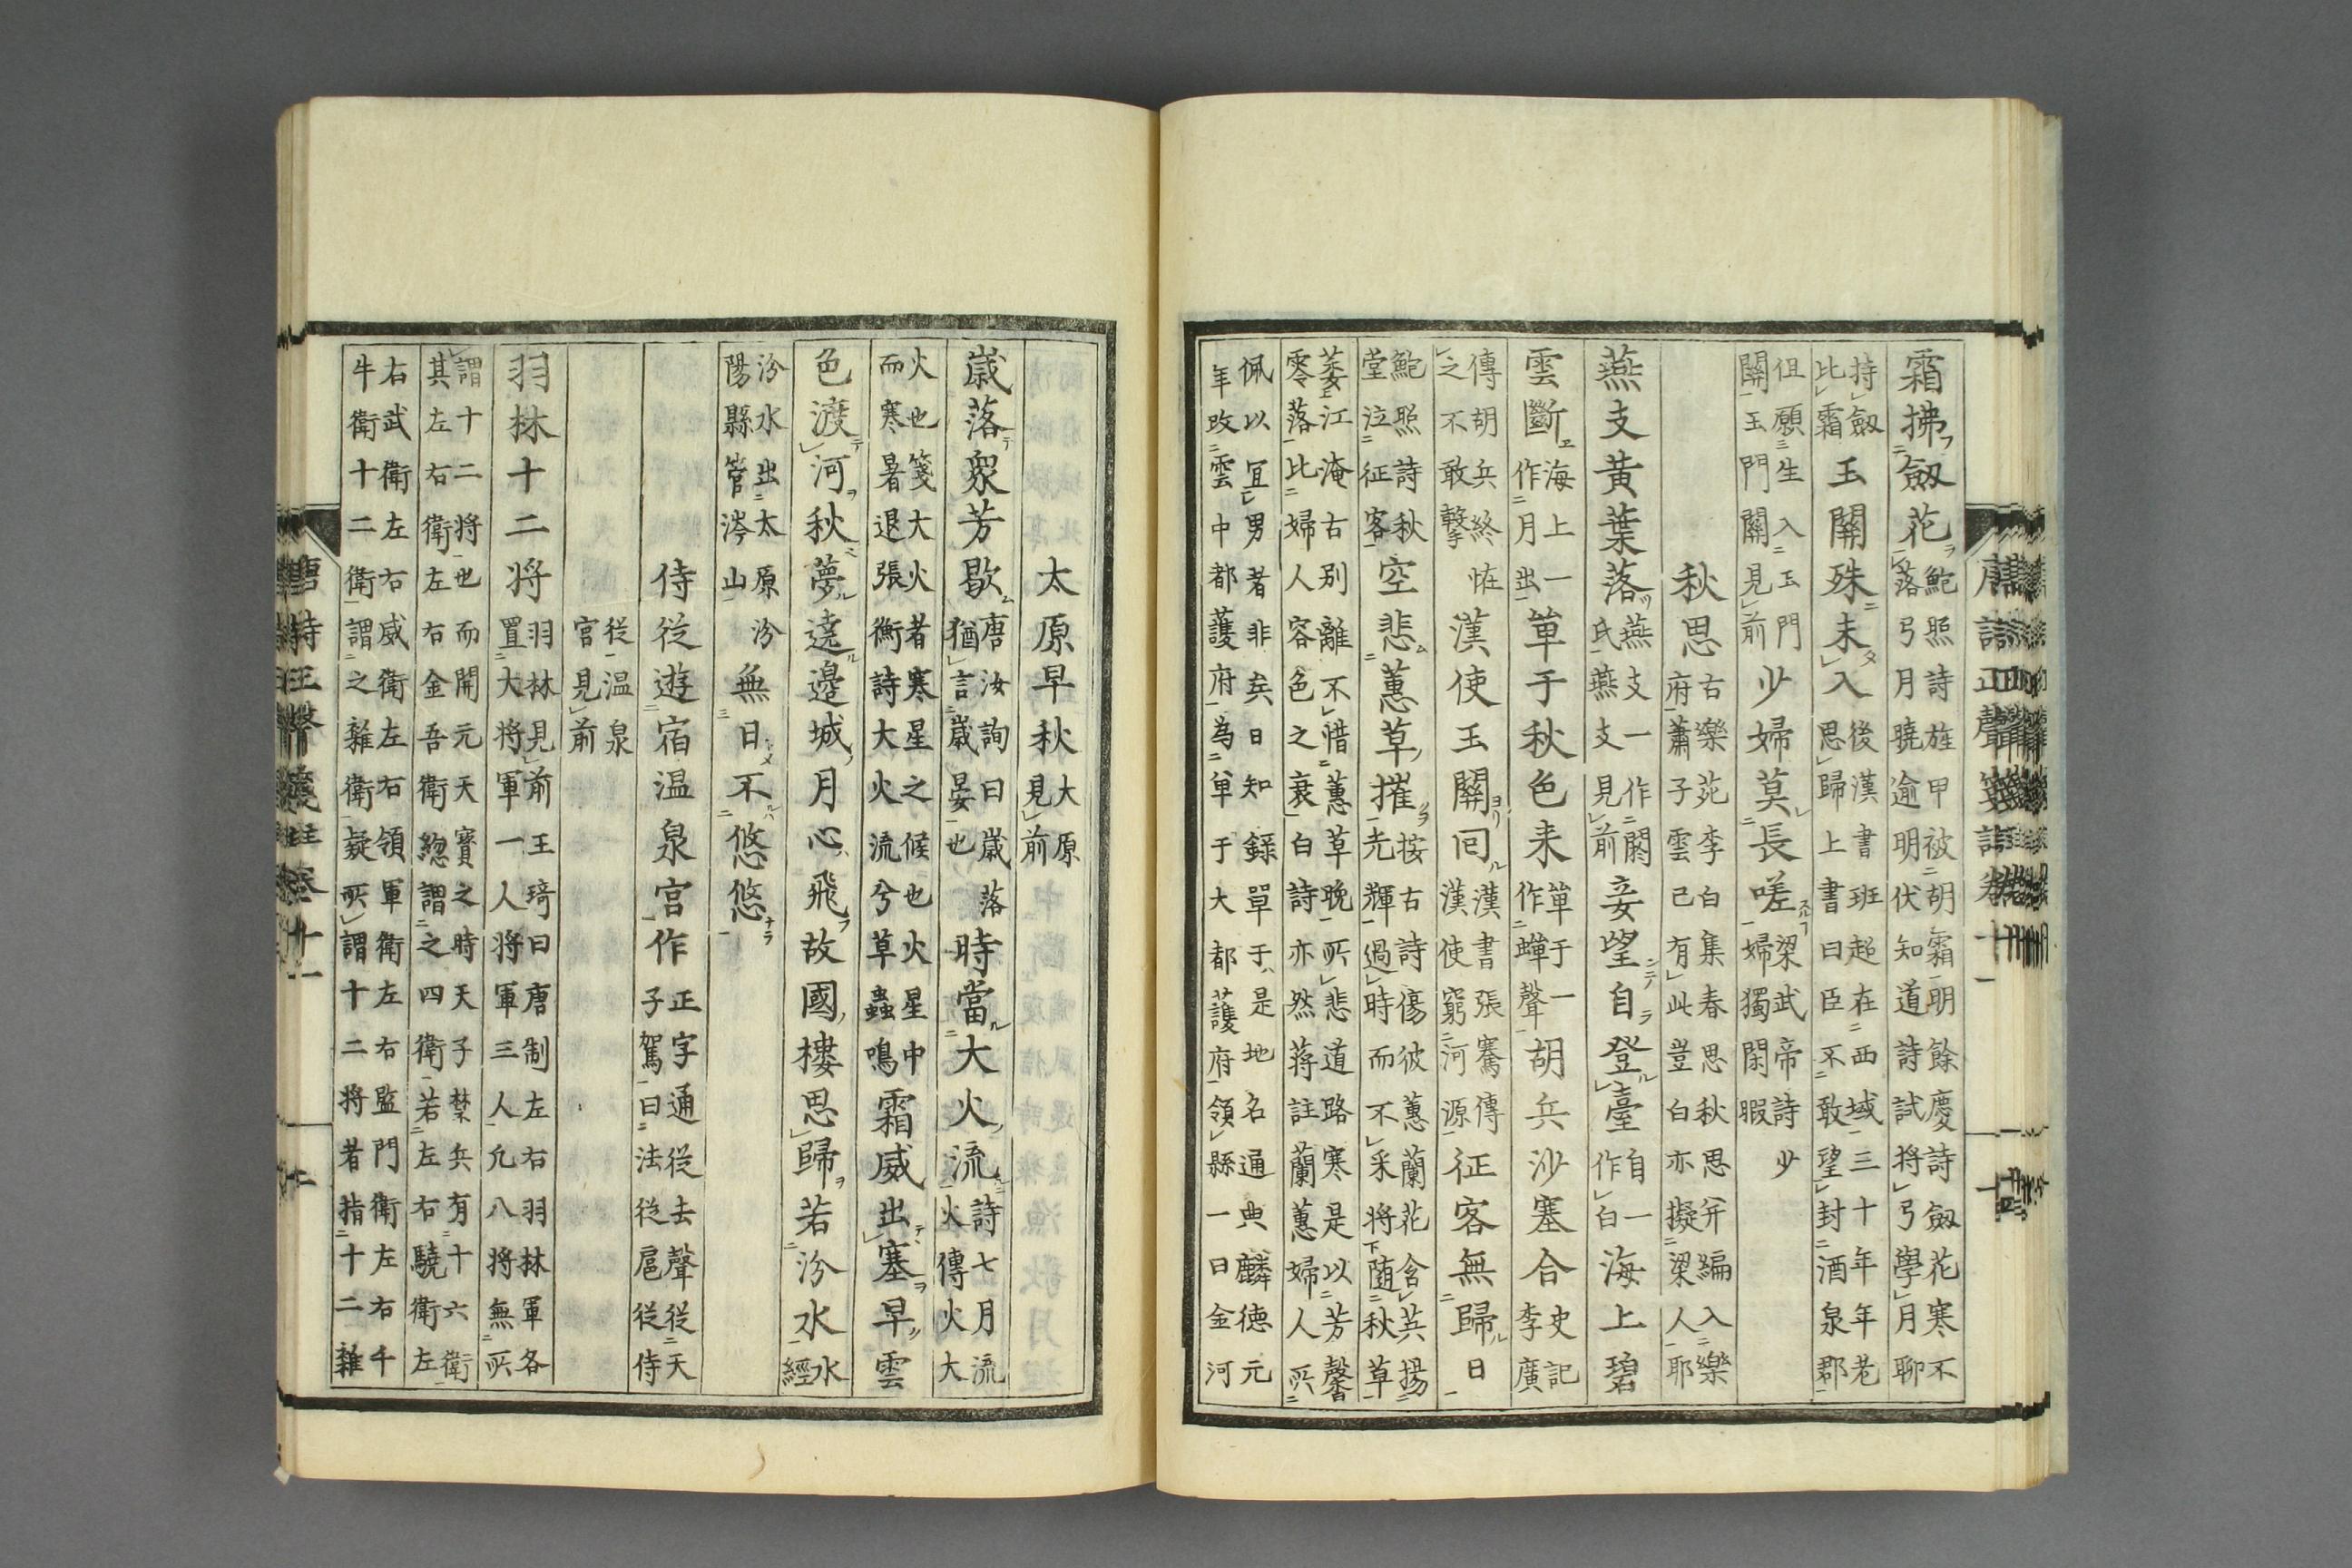 唐詩正聲箋註卷十一
霜拂劔花
鮑照詩旌甲被胡霜明餘慶詩劔花寒不
落弓月曉逾明伏知道詩試将弓學月聊
持劔
比霜
玉關殊未入
後漢書班超在西域三十年年老
思歸上書曰臣不敢望封酒泉郡
但願生入玉門
關玉門關見前
少婦莫長嗟
梁武帝詩少
婦獨閑暇
秋思
右樂苑李白集春思秋思并編入樂
府蕭子雲已有此豈白亦擬梁人耶
燕支黃葉落
燕支一作閼
氏燕支見前
妾望自登臺
自一
作白
海上碧
雲斷
海上一
作月出
單于秋色来
單于一
作蟬聲
胡兵沙塞合
史記
李廣
傳胡兵終恠
之不敢擊
漢使玉關囘
漢書張騫傳
漢使窮河源
征客無歸日
鮑照詩秋
堂泣征客
空悲蕙草摧
按古詩傷彼蕙蘭花含英揚
光輝過時而不采将随秋草
萎江淹古別離不惜蕙草晩所悲道路寒是以芳馨
零落比婦人容色之衰白詩亦然蒋註蘭蕙婦人所
佩以宜男者非矣日知錄單于是地名通典麟德元
年改雲中都護府為單于大都護府領縣一曰金河
太原早秋
大原
見前
歲落衆芳歇
唐汝詢曰歲落
猶言歲晏也
時當大火流
詩七月流
火傳火大
火也箋大火者寒星之候也火星中
而寒暑退張衡詩大火流兮草蟲鳴
霜威出塞早雲
色渡河秋夢遶邊城月心飛故國樓思歸若汾水
水
經
汾水出太原汾
陽縣管涔山
無日不悠悠
侍從遊宿温泉宮作
正字通從去聲從天
子駕曰法從扈從侍
從温泉
宮見前
羽林十二将
羽林見前王琦曰唐制左右羽林軍各
置大将軍一人将軍三人凢八将無所
謂十二将也而開元天寶之時天子禁兵有十六衛
其左右衛左右金吾衛緫謂之四衛若左右驍衛左
右武衛左右威衛左右領軍衛左右監門衛左右千
牛衛十二衛謂之雜衛疑所謂十二将者指十二雜
唐詩正聲箋註卷十一